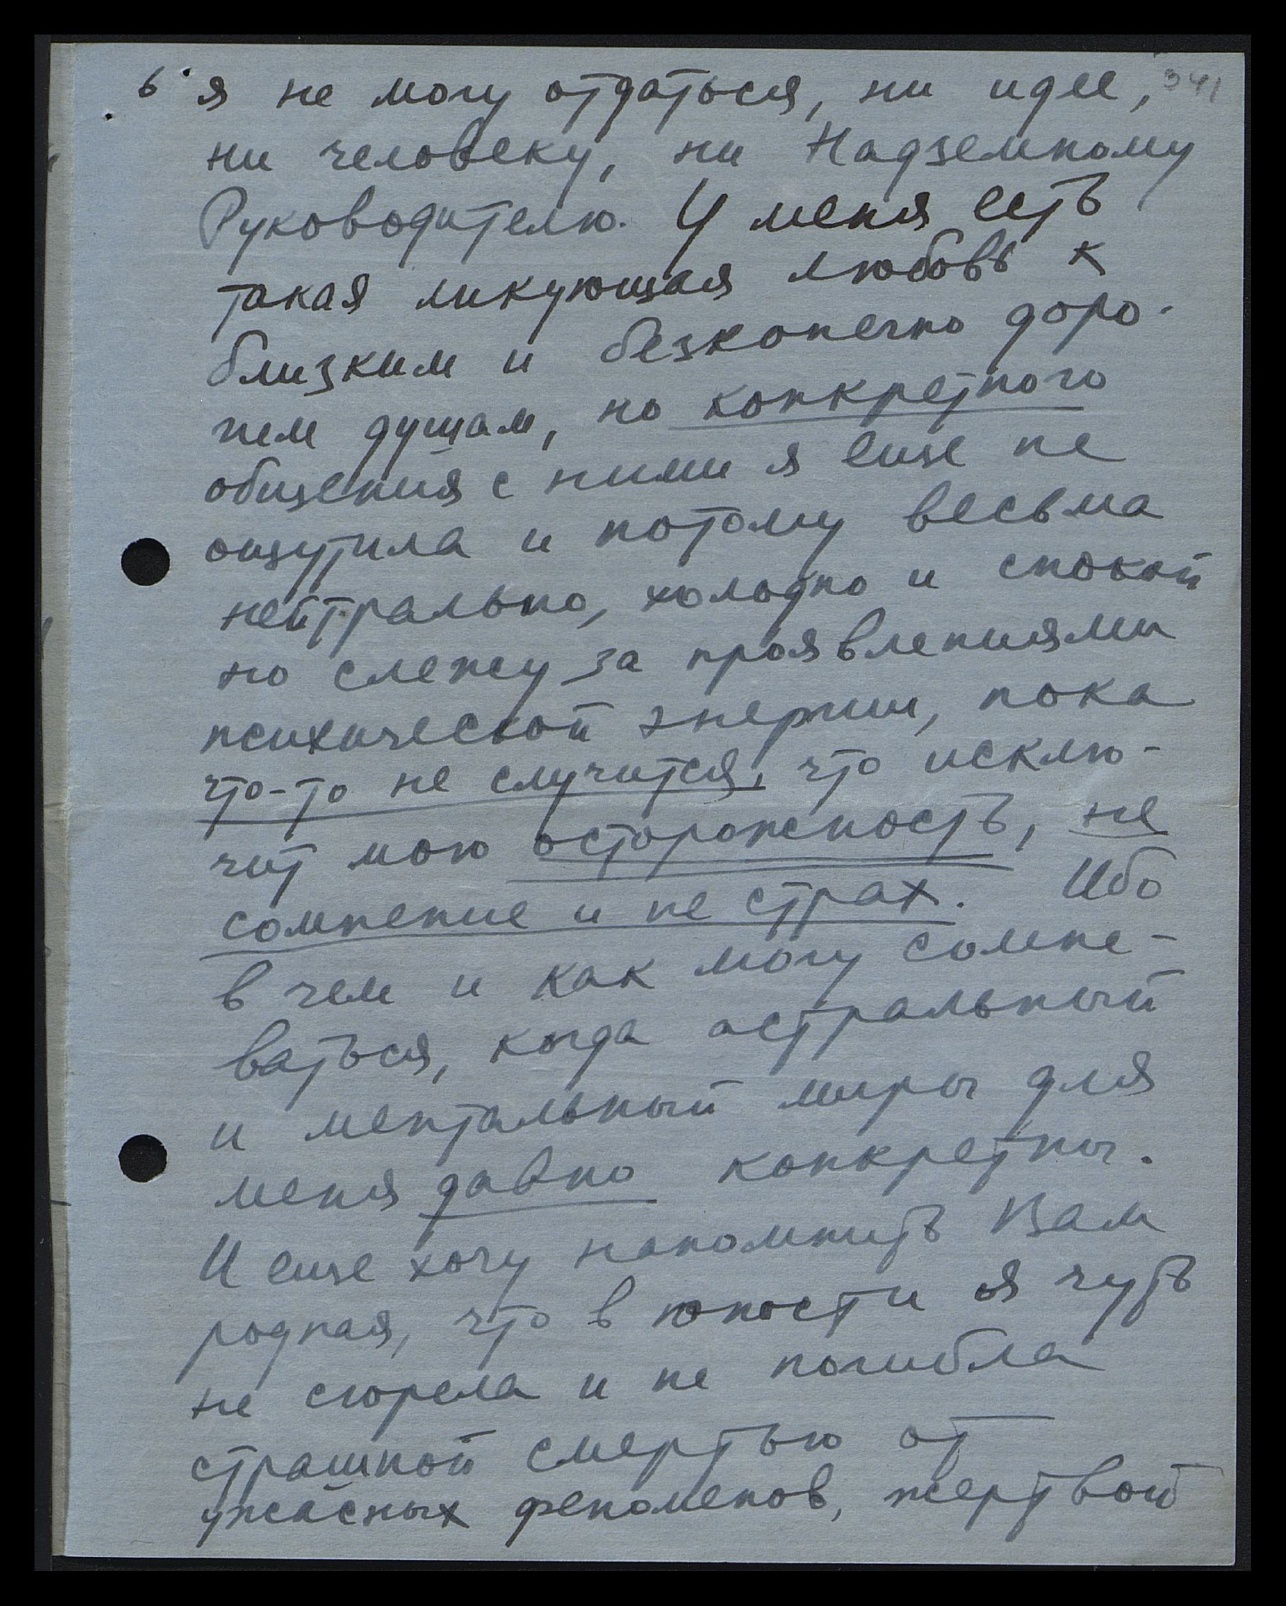 6 я не могу отдаться, ни идее, 341
ни человеку, ни Надземному
Руководителю. У меня есть
такая ликующая любовь к
близким и безконечно доро-
гим душам, но конкретного
общения с ними я еще не
ощутила и потому весьма
нейтрально, холодно и спокой
но слежу за проявлениями
психической энергии, пока
что-то не случится, что исклю-
чит мою осторожность, не
сомнение и не страх. Ибо
в чем и как могу сомне-
ваться, когда астральный
и ментальный миры для
меня давно конкретны.
И еще хочу напомнить Вам
родная, что в юности я чуть
не сгорела и не погибла
страшной смертью от
ужасных феноменов, жертвой